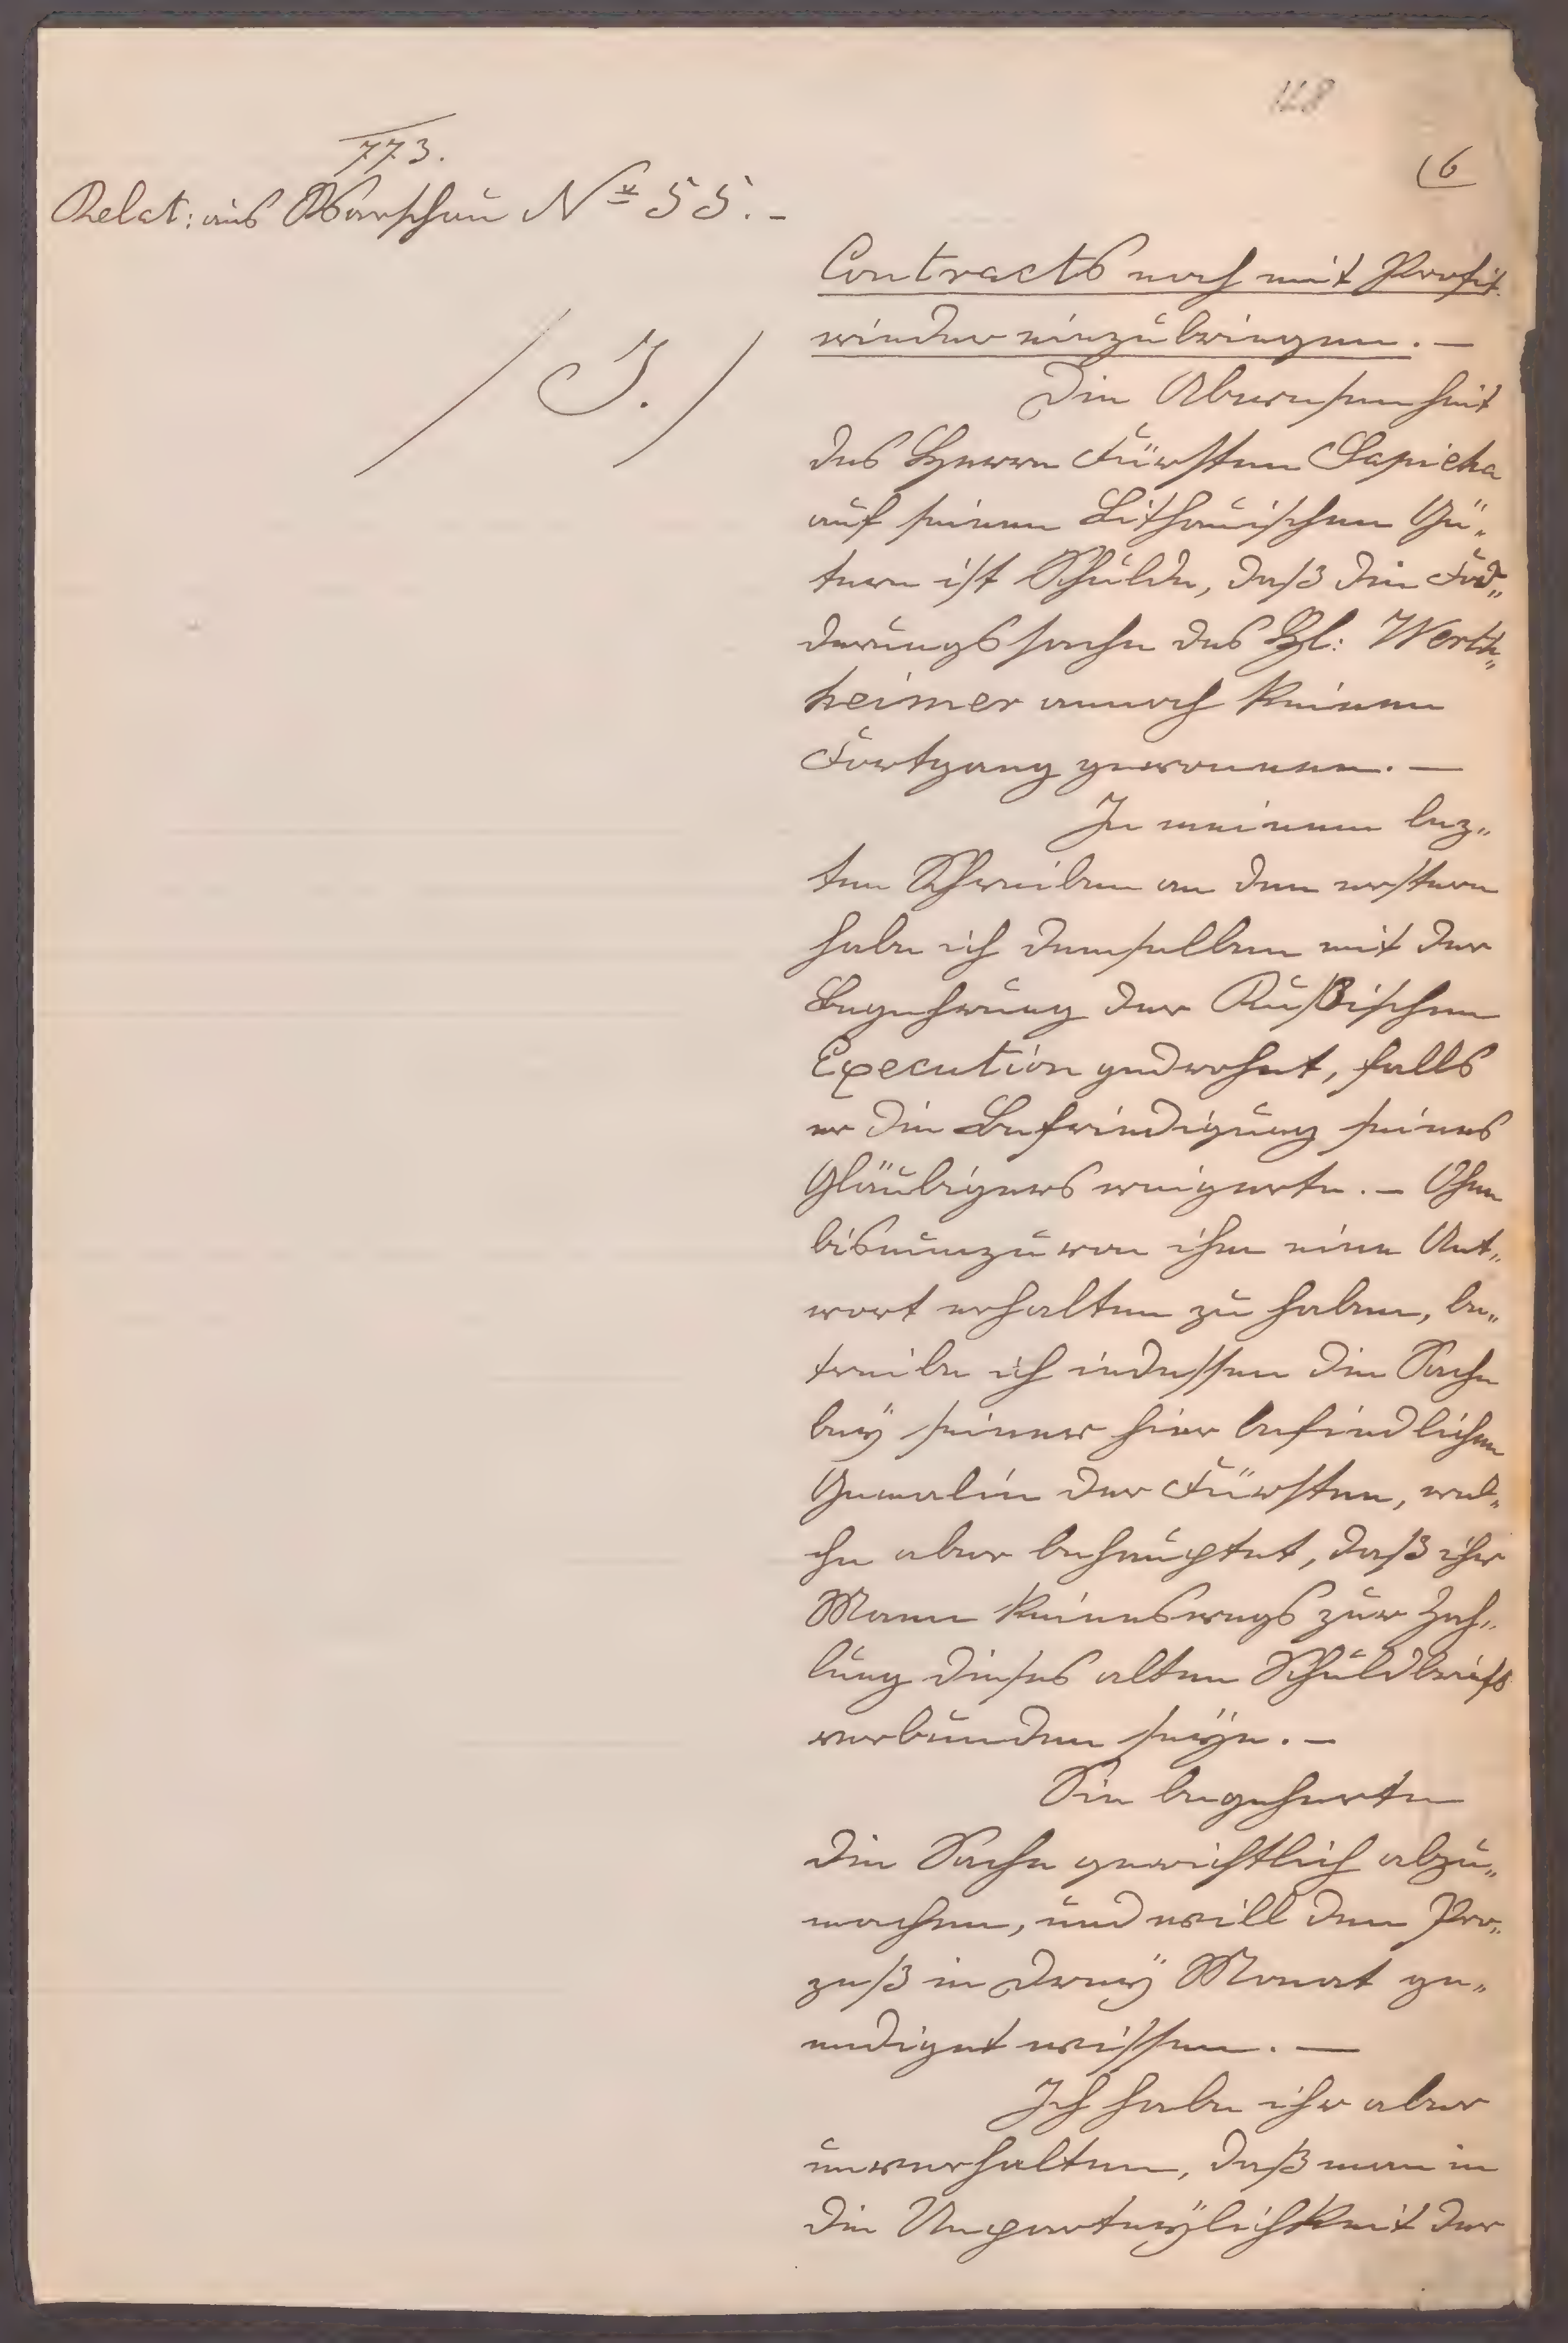 128
6
773.
Relat: aus Warschau No 55.-
/ J. /
Contracts noch mit Profit
wieder einzubringen. —
Die Abwesenheit
des Herrn Fürsten Sapieha
auf seinen Lithauischen Gü„
tern ist Schulde, daß die Fod„
derungssache des H: Werth„
heimer annoch keinen
Fortgang gewonnen. —
In meinem lez„
ten Schreiben an den erstern
habe ich demselben mit der
Begehrung der Rußischen
Execution gedrohet, falls
er die Befriedigung seines
Gläubigers weigerte. — Ohne
bisnunzu von ihm eine Ant„
wort erhalten zu haben, be„
treibe ich indessen die Sache
bey seiner hier befindlichen
Gemalin der Fürsten, wel„
che aber behauptet, daß ihr
Mann keineswegs zur Zah„
lung dieses alten Schuldbriefs
verbunden seye. —
Sie begehrte
die Sache gerichtlich abzu„
machen, und will den Pro„
zeß in drey Monat ge„
endiget wissen. —
Ich habe ihr aber
unverhalten, daß man in
die Unparteylichkeit der